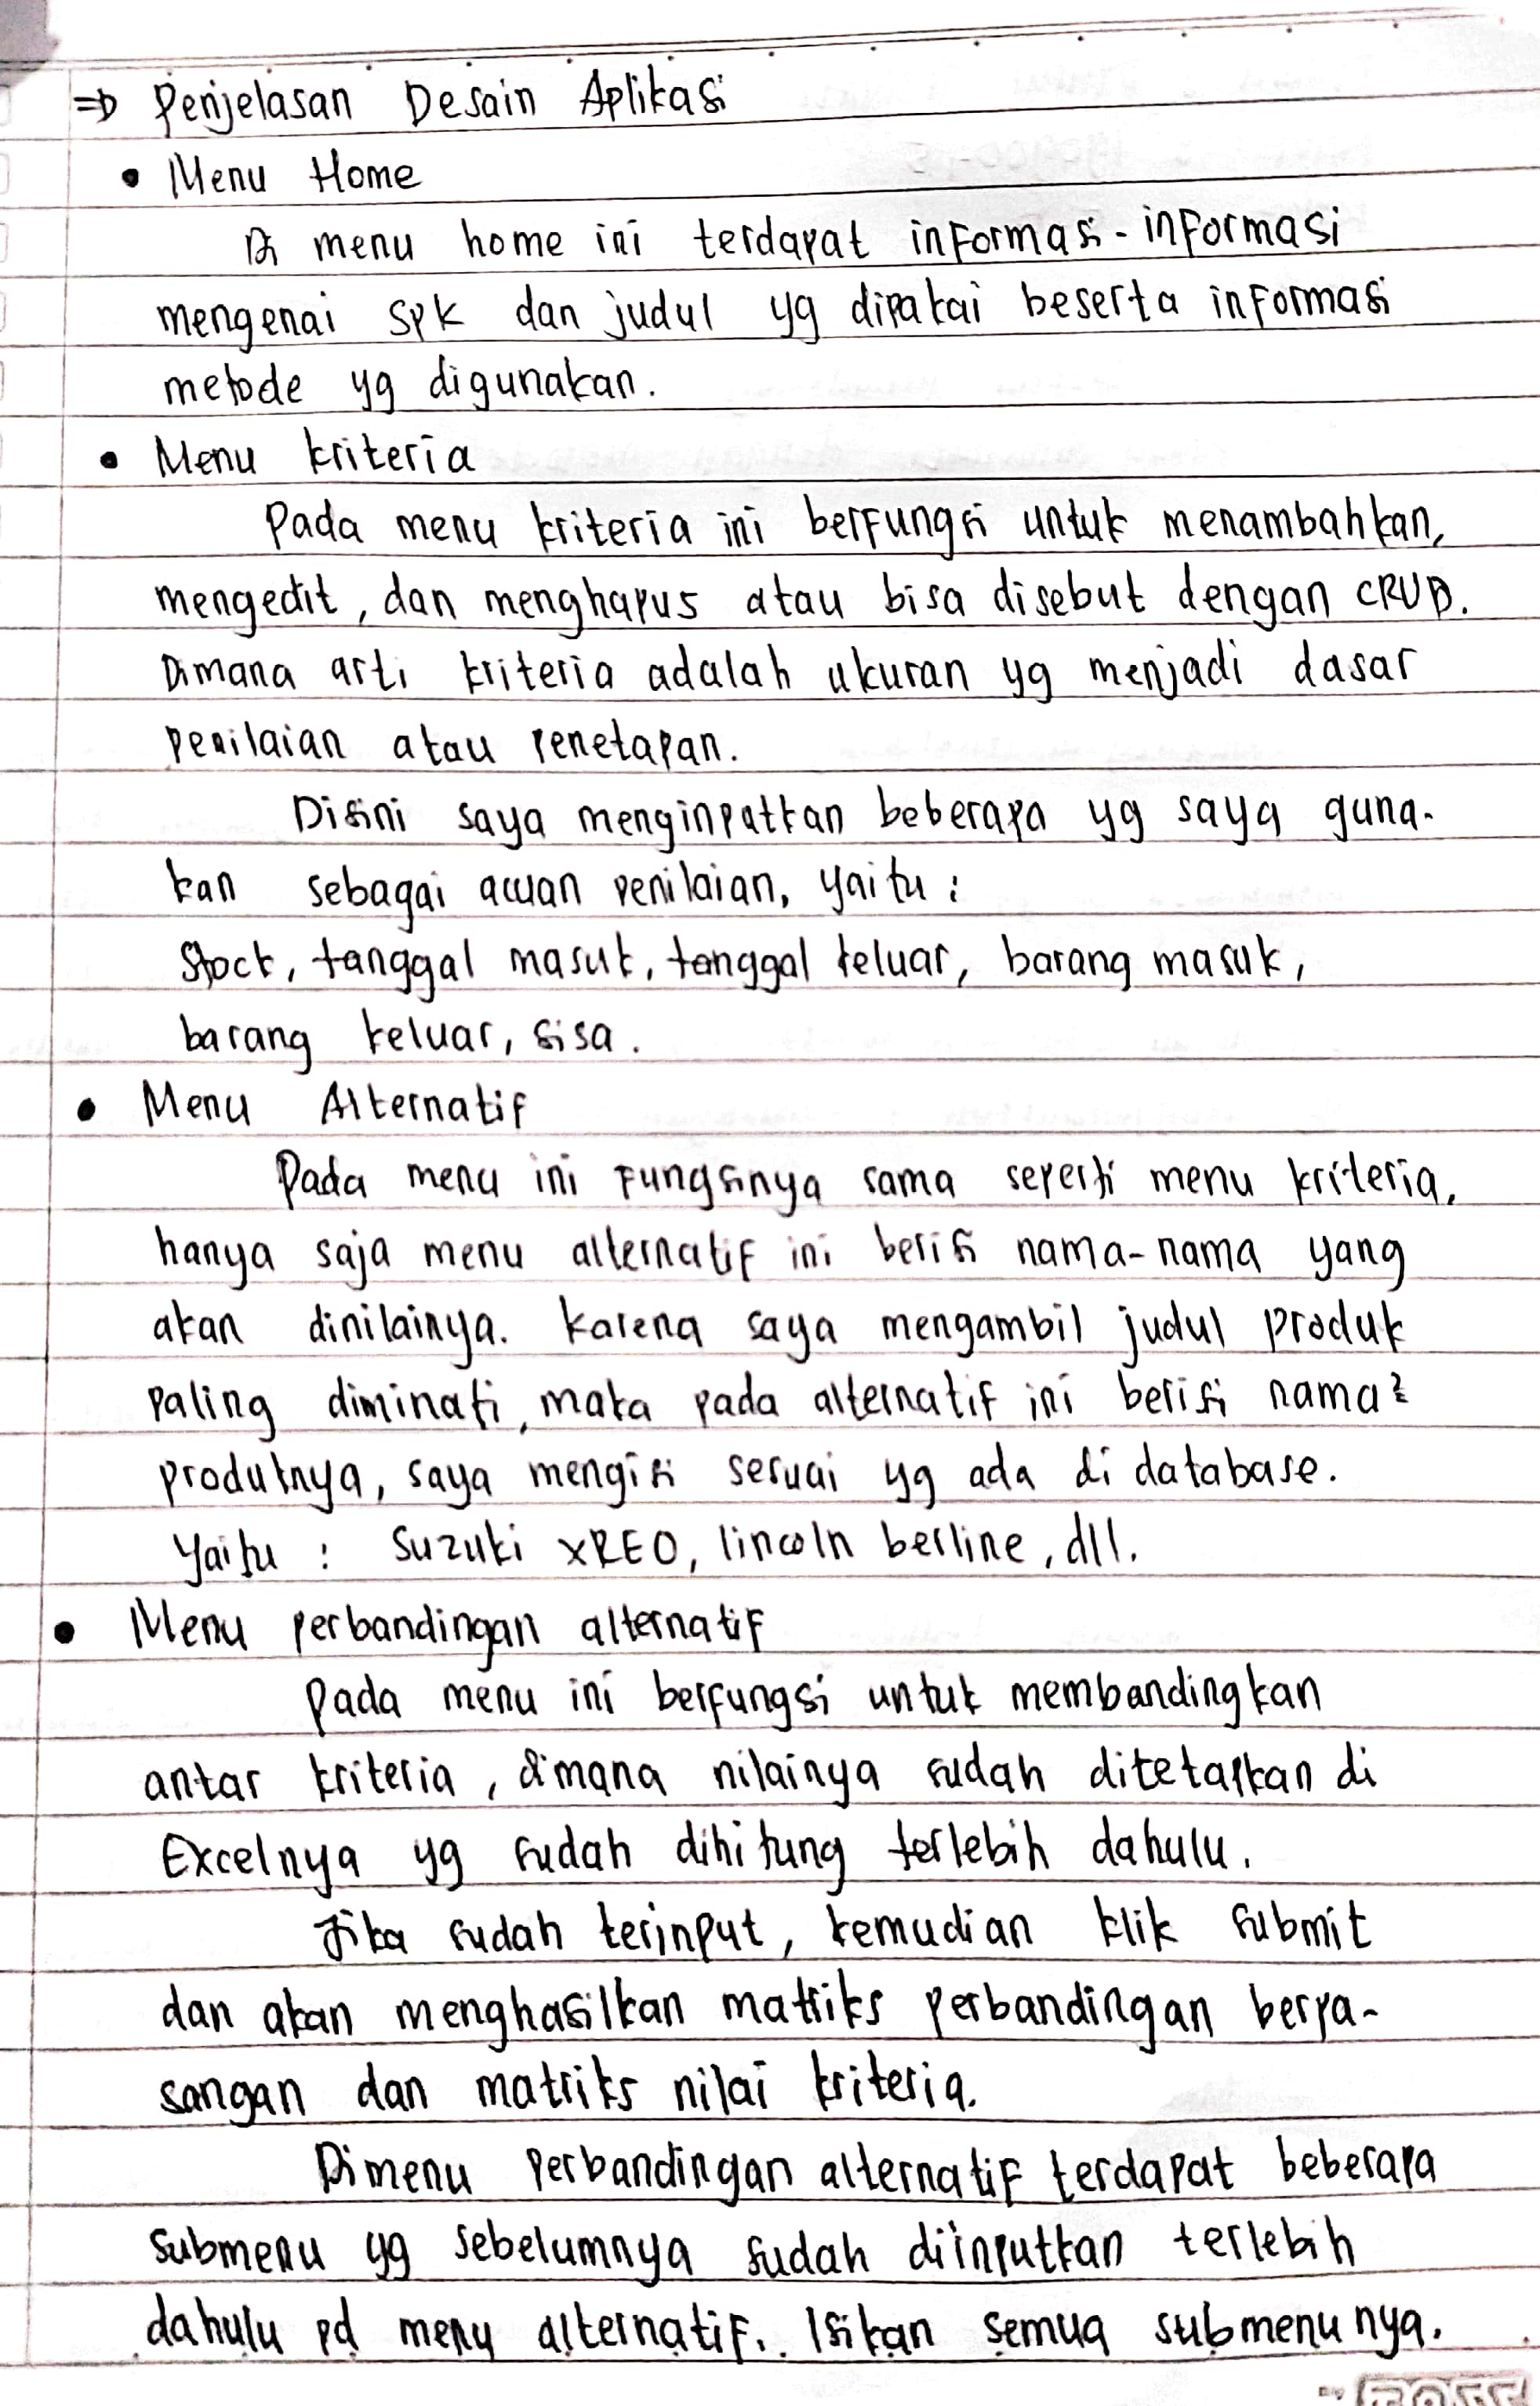 ⇒ Penjelasan Desain Aplikasi
• Menu Home
Di menu home ini terdapat informasi-informasi
mengenai SPK dan judul yg dipakai beserta informasi
metode yg digunakan.
• Menu kriteria
Pada menu kriteria ini berfungsi untuk menambahkan,
mengedit, dan menghapus atau bisa disebut dengan CRUD.
Dimana arti kriteria adalah ukuran yg menjadi dasar
penilaian atau penetapan.
Disini saya menginputkan beberapa yg saya guna-
kan sebagai acuan penilaian, yaitu :
Stock, tanggal masuk, tanggal keluar, barang masuk,
barang keluar, sisa.
• Menu Alternatif
Pada menu ini fungsinya sama seperti menu kriteria,
hanya saja menu alternatif ini berisi nama-nama yang
akan dinilainya. Karena saya mengambil judul produk
paling diminati, maka pada alternatif ini berisi nama²
produknya, saya mengisi sesuai yg ada di database.
Yaitu : Suzuki XREO, lincoln berline, dll.
• Menu perbandingan alternatif
Pada menu ini berfungsi untuk membandingkan
antar kriteria, dimana nilainya sudah ditetapkan di
Excelnya yg sudah dihitung terlebih dahulu.
Jika sudah terinput, kemudian klik submit
dan akan menghasilkan matriks perbandingan berpa-
sangan dan matriks nilai kriteria.
Dimenu Perbandingan alternatif terdapat beberapa
submenu yg sebelumnya sudah diinputkan terlebih
dahulu pd menu alternatif. Isikan semua submenunya.